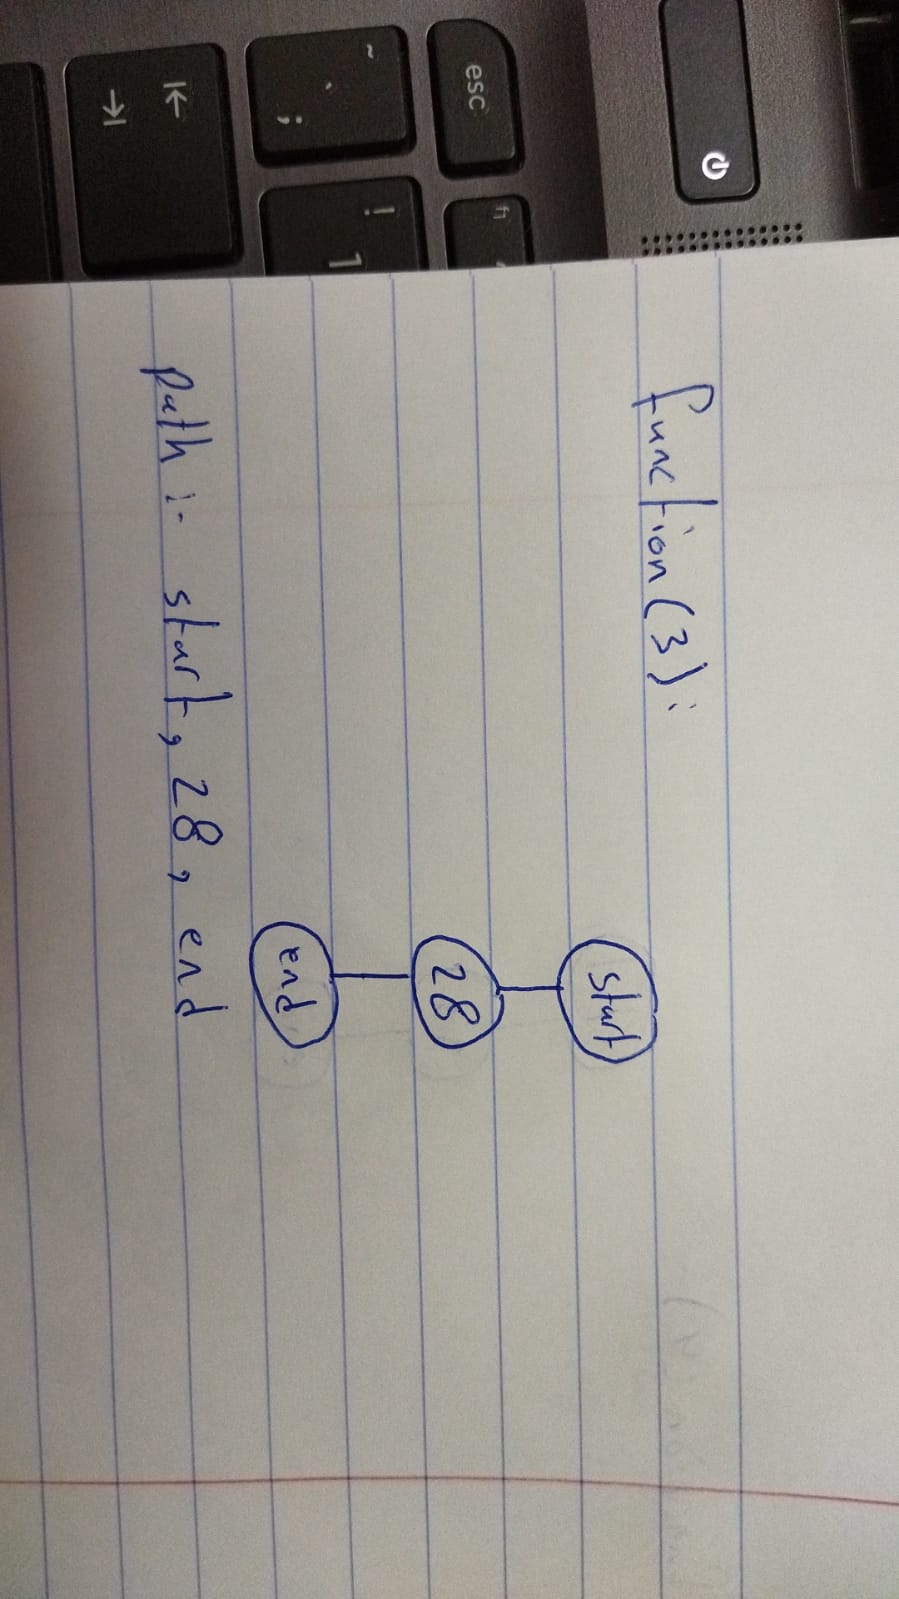 esc
~
` ;
!
1
function(3):
start
28
end
path :- start, 28, end